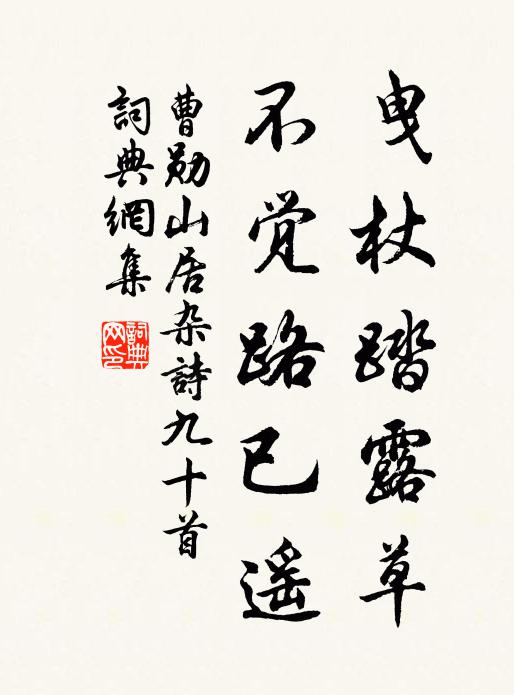 曳杖踏露草
不覚路已遥
曹勋山居杂詩九十首
詞典網集
詞典網印